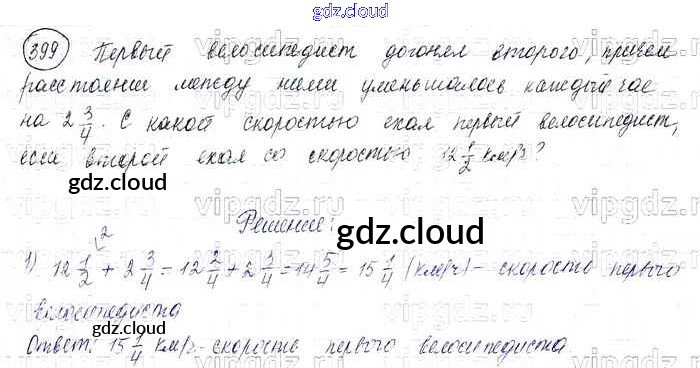 gdz.cloud
399 Первый велосипедист догонял второго, причём
расстояние между ними уменьшалось каждый час
на 2 3/4. С какой скоростью ехал первый велосипедист,
если второй ехал со скоростью 12 1/2 км/ч?
gdz.cloud
Решение:
gdz.cloud
1) 12 1/2 + 2 3/4 = 12 2/4 + 2 3/4 = 14 5/4 = 15 1/4 (км/ч) - скорость первого
велосипедиста
gdz.cloud
Ответ: 15 1/4 км/ч - скорость первого велосипедиста.
gdz.cloud